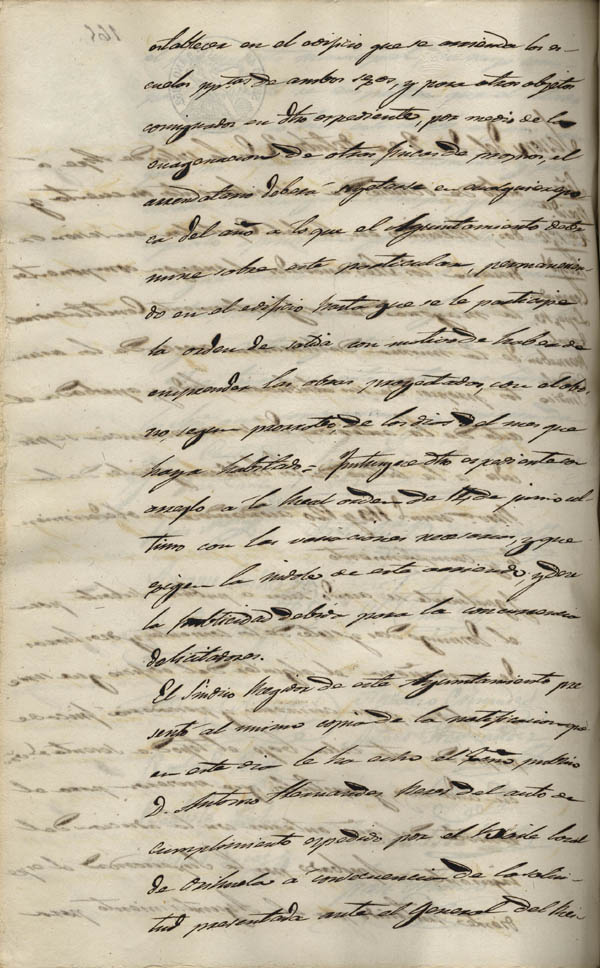 establecer en el edificio que se arrienda los es-
cuelas pprtas de ambos sexos, y para otros objetos
consignados en dho espediente, por medio de la
enagenacion de otras fincas de propios, el
arrendatario deberá sugetarse en cualquier epo-
ca del año a lo que el Ayuntamiento deter-
mine sobre este particular, permanecien-
do en el edificio hasta que se le participe
la orden de salida con motivo de haber de
emprender las obras proyectadas, con el abo-
no segun prorrateo, de los dias del mes que
haya habitado = Instruyese dho espediente con
arreglo a la Real orden de 14 de junio ul-
timo con las variaciones necesarias y que
exigen la indole de este arriendo y den
la publicidad debida para la concurrencia
de licitadores.
El Sindico Regidor de este Ayuntamiento pre
sentó al mismo copia de la notificacion que
en este dia le ha echo el Esno publico
D. Antonio Hernandez del auto de
cumplimiento espedido por el Local
de Orihuela á consecuencia de la solici-
tud presentada ante el General del Rei-